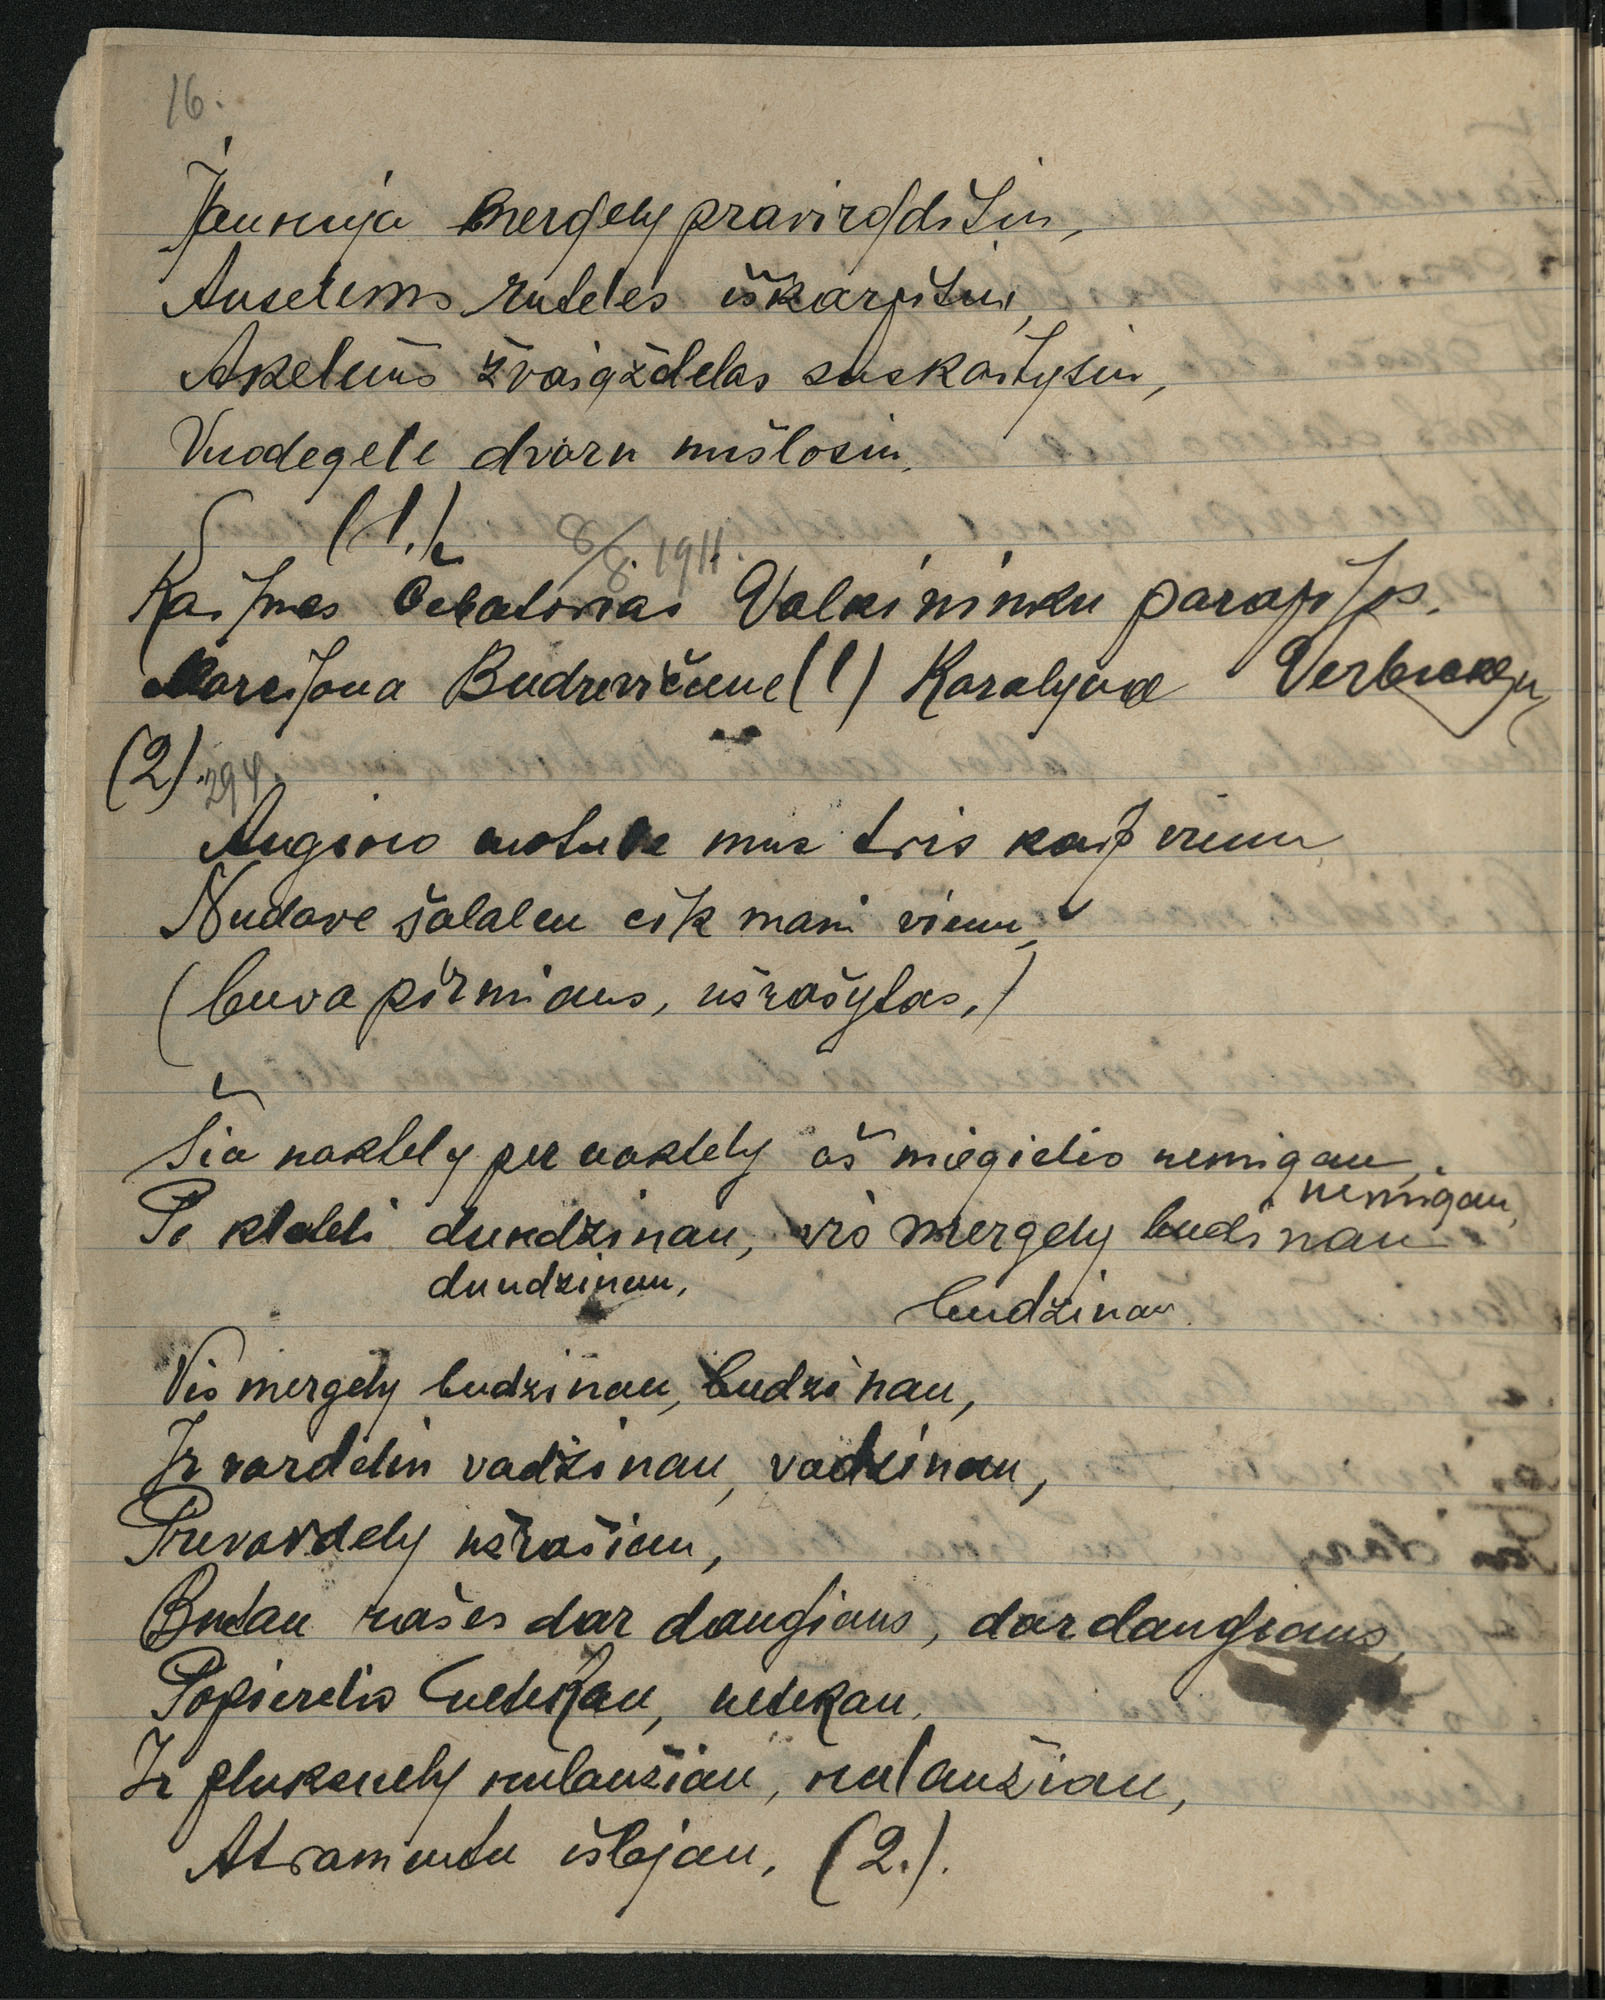 16.
Jaunuja mergely pravirgdisiu,
Ausetems ruteles iškarpisiu,
Akelems žvaigždelas suskaitysiu,
Vuodegele dvaru nušlosiu.
(1.)
8/8 1911.
Kaimas Čebatorias Valkininku parapijos.
Marcijona Budrevičiene (1) Karalyna
(2). 294.
Augino motute mus tris kaip vienu
Nudave šalaleu eik mani vienu,
(buva pirmiaus, užrašytas,)
Šia naktely per naktely aš miegielio nemigau,
nemigau,
Po kleteli dundzinau, vis mergely budinau
dundzinau,
budzinau.
Vis mergely budzinau, budzinau,
Ir vardelin vadzinau, vadzinau,
Prevardely užrašiau,
Butau rašes dar daugiaus, dar daugiaus,
Popierelio netekau, netekau.
Ir pluksnely nulaužiau, nulaužiau,
Atramentu išlejau, (2.).